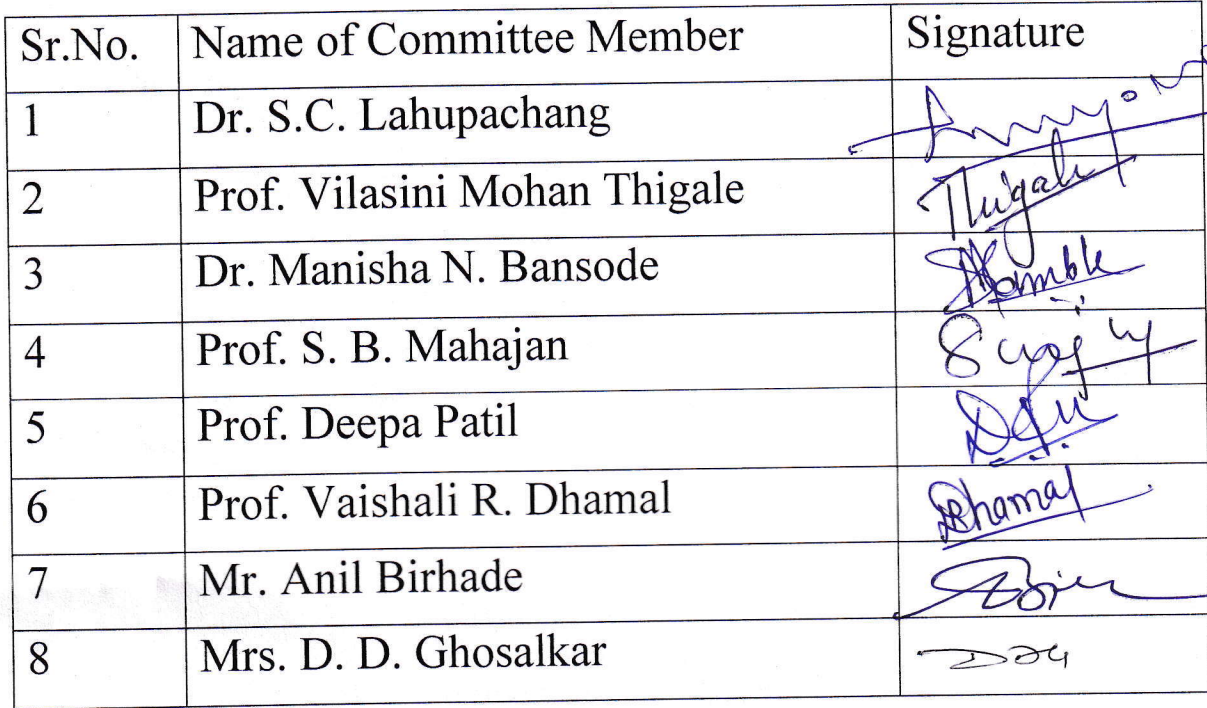 Sr.No. Name of Committee Member Signature
1 Dr. S.C. Lahupachang
2 Prof. Vilasini Mohan Thigale Thigale
3 Dr. Manisha N. Bansode
4 Prof. S. B. Mahajan
5 Prof. Deepa Patil
6 Prof. Vaishali R. Dhamal Dhamal
7 Mr. Anil Birhade
8 Mrs. D. D. Ghosalkar